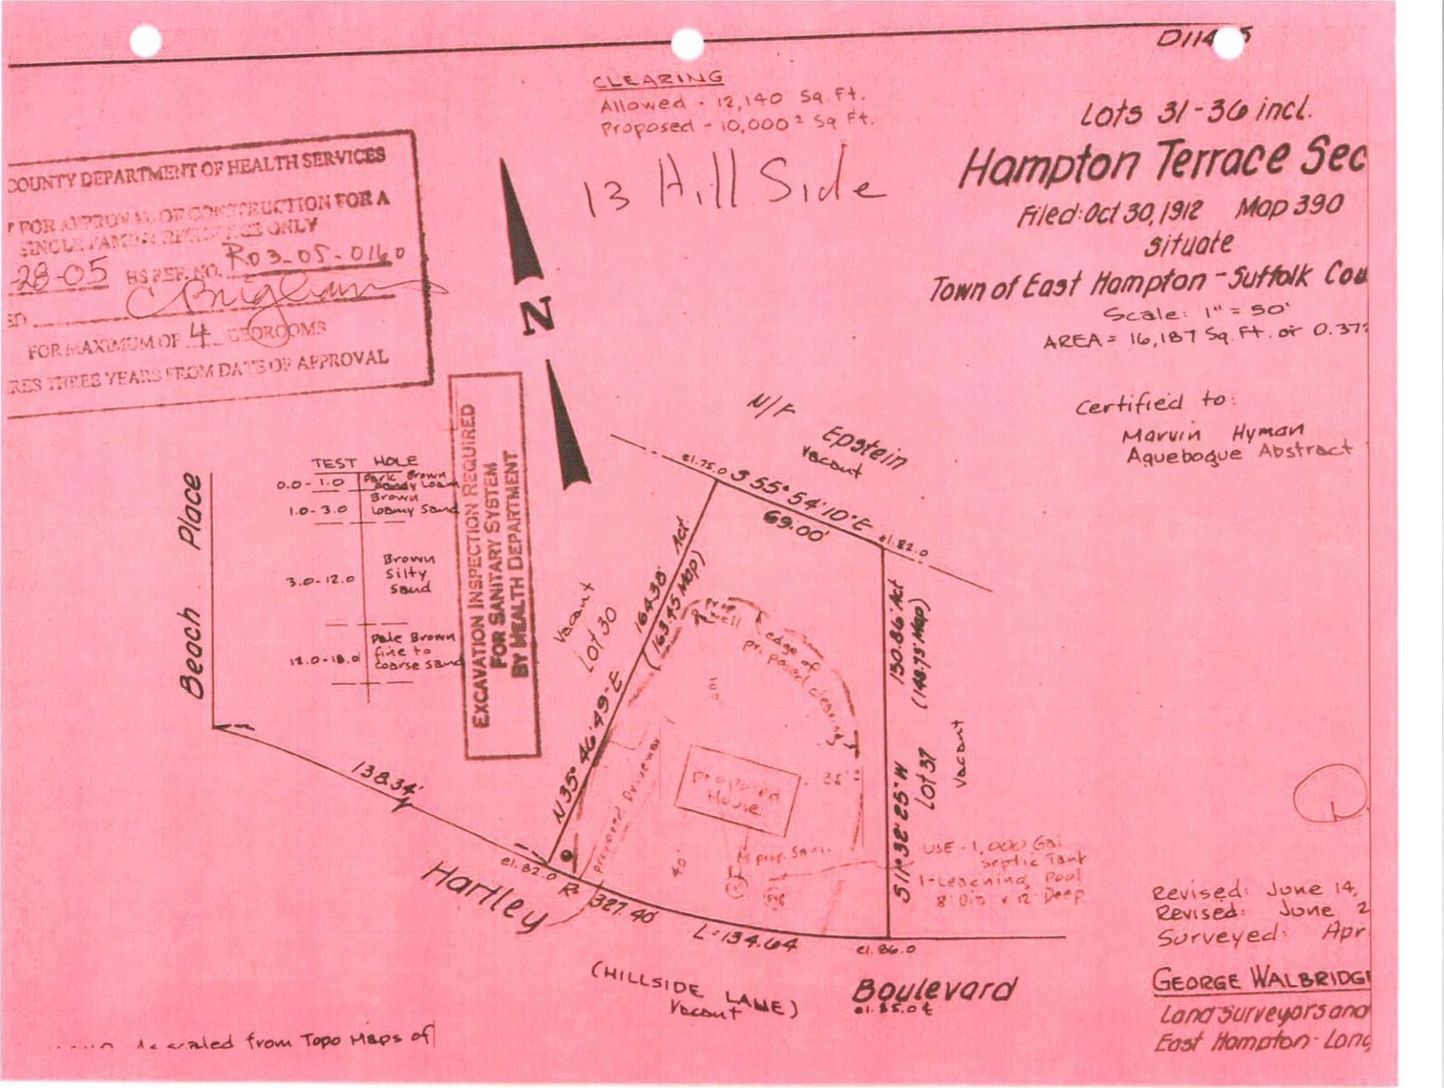 CLEARING
Allowed - 12,140 Sq. Ft.
Proposed - 10,000 ± Sq Ft.
13 HillSide
Lots 31-36 incl.
Hampton Terrace Sec
Filed: Oct 30, 1912 Map 390
situate
Town of East Hampton - Suffolk Cou
Scale: 1" = 50'
AREA = 16,187 Sq. Ft. or 0.37
Certified to:
Marvin Hyman
Aquebogue Abstract
COUNTY DEPARTMENT OF HEALTH SERVICES
FOR APPROVAL OF CONSTRUCTION FOR A
SINGLE FAMILY RESIDENCE ONLY
-28-05 HS REF. NO. R03-05-0160
FOR MAXIMUM OF 4 BEDROOMS
RES THREE YEARS FROM DATE OF APPROVAL
N
EXCAVATION INSPECTION REQUIRED
FOR SANITARY SYSTEM
BY HEALTH DEPARTMENT
TEST HOLE
0.0 - 1.0 Dark Brown Sandy Loam
1.0 - 3.0 Brown loamy Sand
3.0 - 12.0 Brown Silty Sand
12.0 - 18.0 Pale Brown fine to coarse sand
Beach Place
138.34'
N/F
Epstein
vacant
el. 75.0
S 55° 54' 10" E
69.00'
el. 82.0
N 35° 46' 49" E
164.38' Act.
(163.45 Map)
vacant
Lot 30
Prop. well
edge of
proposed clearing
100'
proposed Driveway
Proposed
House
35'
40'
S 11° 32' 25" W
150.86' Act
(148.73' Map)
Lot 37
vacant
USE - 1,000 Gal
Septic Tank
1-Leaching Pool
8' Dia x 12' Deep
el. 82.0
R= 327.40'
L= 134.64
el. 86.0
Hartley
Boulevard
el. 85.0 ±
(HILLSIDE LANE)
Vacant
Revised: June 14,
Revised: June 2
Surveyed: Apr
GEORGE WALBRIDGE
Land Surveyors and
East Hampton - Long
As scaled from Topo Maps of